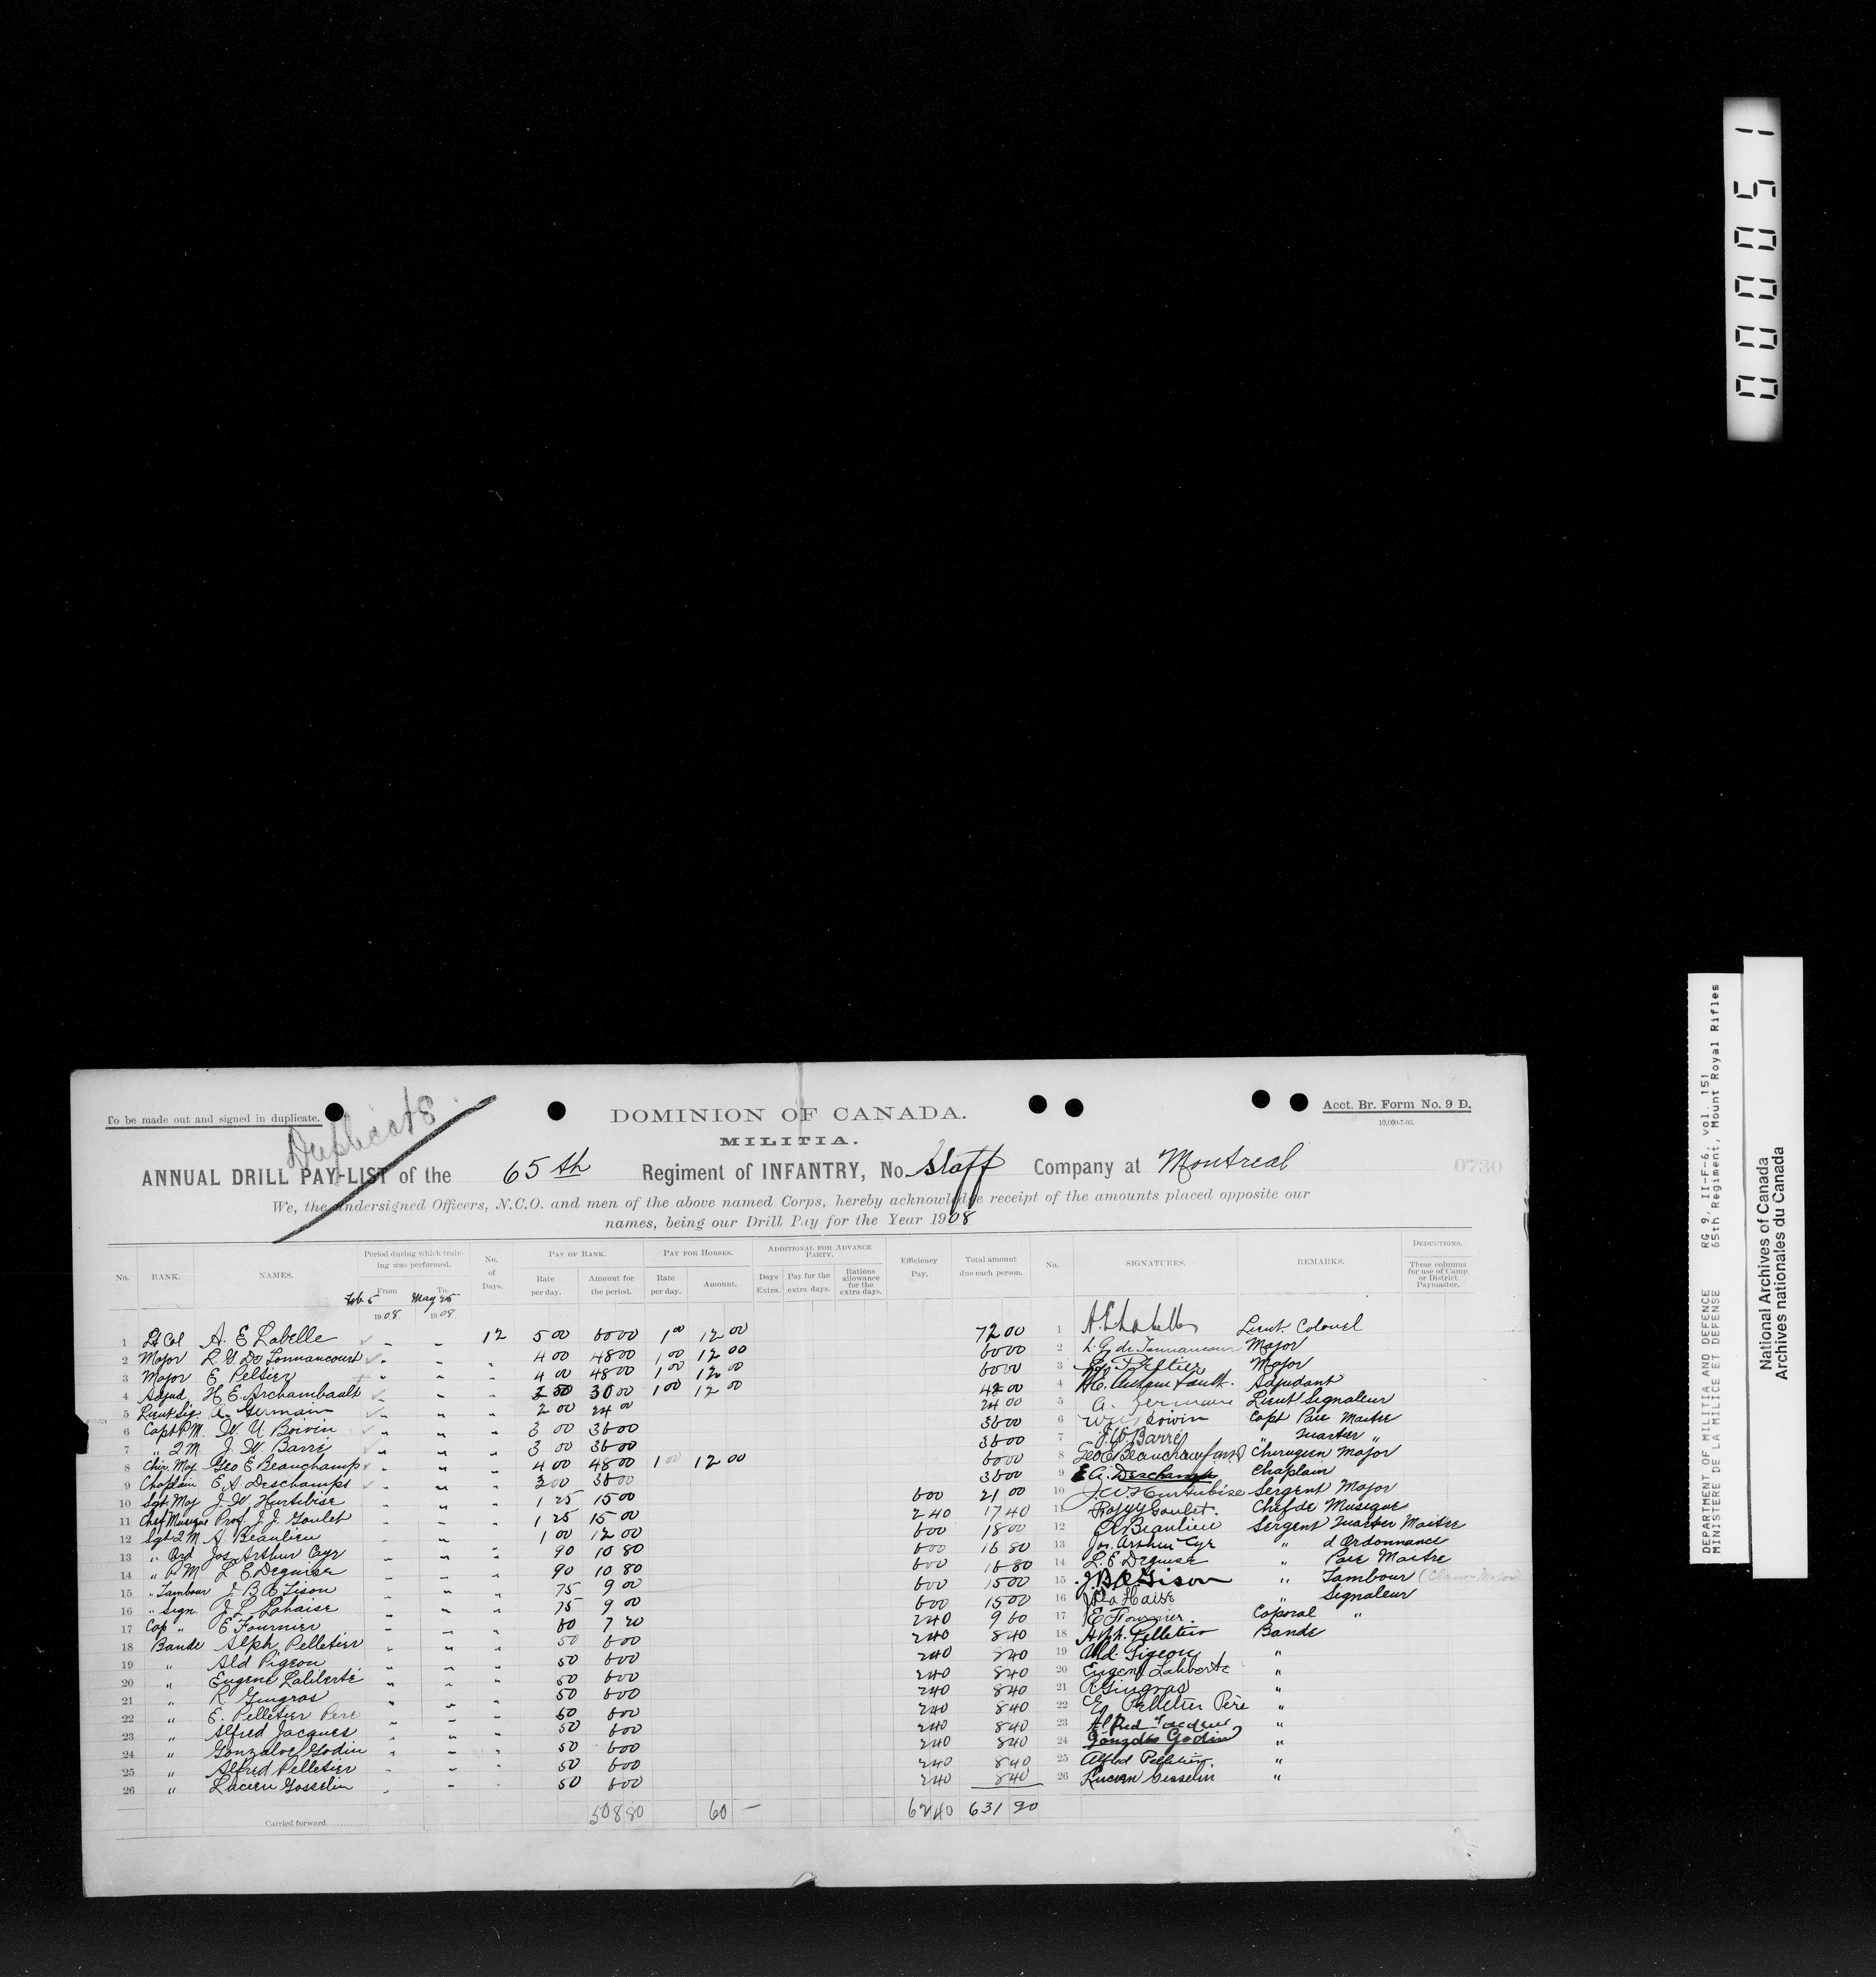 0000051
DEPARTMENT OF MILITIA AND DEFENCE RG 9, II-F-6, vol. 151
MINISTERE DE LA MILICE ET DEFENSE 65th Regiment, Mount Royal Rifles
National Archives of Canada
Archives nationales du Canada
To be made out and signed in duplicate.
Duplicate
DOMINION OF CANADA.
Acct. Br. Form No. 9 D.
10,000-7-05.
MILITIA.
ANNUAL DRILL PAY-LIST of the 65th Regiment of INFANTRY, No. Staff Company at Montreal
0730
We, the undersigned Officers, N.C.O. and men of the above named Corps, hereby acknowledge receipt of the amounts placed opposite our
names, being our Drill Pay for the Year 1908
No. RANK. NAMES. Period during which training was performed. From Feb 5 1908 To May 25 1908 No. of Days. PAY OF RANK. Rate per day. Amount for the period. PAY FOR HORSES. Rate per day. Amount. ADDITIONAL FOR ADVANCE PARTY. Days Extra. Pay for the extra days. Rations allowance for the extra days. Efficiency Pay. Total amount due each person. No. SIGNATURES. REMARKS. DEDUCTIONS. These columns for use of Camp or District Paymaster.
1 Lt Col A. E Labelle 12 5 00 60 00 1 00 12 00 72 00 1 A. E. Labelle Lieut. Colonel
2 Major L. G. De Tonnancourt " " " 4 00 48 00 1 00 12 00 60 00 2 L. G. de Tonnancour Major
3 Major E. Peltier " " " 4 00 48 00 1 00 12 00 60 00 3 E. Peltier Major
4 Adjud H. E. Archambault " " " 2 50 30 00 1 00 12 00 42 00 4 H. E. Archambault. Adjudant
5 Lieut Sig. A. Germain " " " 2 00 24 00 24 00 5 A. Germain Lieut Signaleur
6 Capt P.M. W. U Boivin " " " 3 00 36 00 36 00 6 W U Boivin Capt Paie Maitre
7 " Q M J. W. Barré " " " 3 00 36 00 36 00 7 J. W. Barré " Quartier "
8 Chir. Maj Geo E Beauchamp " " " 4 00 48 00 1 00 12 00 60 00 8 Geo E Beauchamp Chirurgien Major
9 Chaplain E. A Deschamps " " " 3 00 36 00 36 00 9 E. A. Deschamps Chaplain
10 Sgt. Maj J. W. Hurtibise " " " 1 25 15 00 6 00 21 00 10 J. W. Hurtubise Sergent Major
11 Chef Musique Prof. J. J. Goulet " " " 1 25 15 00 2 40 17 40 11 Goulet. Chef de Musique
12 Sgt Q M A. Beaulieu " " " 1 00 12 00 6 00 18 00 12 A Beaulieu Sergent Quartier Maitre
13 " Ord Jos. Arthur Cyr " " " 90 10 80 6 00 16 80 13 Jos. Arthur Cyr " d Ordonnance
14 " P M L E Deguise " " " 90 10 80 6 00 16 80 14 L. E Deguise " Paie Maitre
15 " Tambour J. B. A Tison " " 75 9 00 6 00 15 00 15 J. B. A. Tison " Tambour (Clairon Major)
16 " Sign. J L Lahaise " " " 75 9 00 6 00 15 00 16 LaHaise " Signaleur
17 Cap " E Fournier " " " 60 7 20 2 40 9 60 17 E Fournier. Caporal "
18 Bande Alph Pelletier " " " 50 6 00 2 40 8 40 18 Alph. Pelletier Bande
19 " Ald Pigeon " " " 50 6 00 2 40 8 40 19 Ald. Pigeon "
20 " Eugene Laliberté " " " 50 6 00 2 40 8 40 20 Eugene Laliberté "
21 " R. Gingras " " " 50 6 00 2 40 8 40 21 R Gingras "
22 " E. Pelletier Pere " " " 50 6 00 2 40 8 40 22 E. Pelletier Père "
23 " Alfred Jacques " " " 50 6 00 2 40 8 40 23 Alfred Jacques "
24 " Gonzalve Godin " " " 50 6 00 2 40 8 40 24 Godin "
25 " Alfred Pelletier " " " 50 6 00 2 40 8 40 25 Alfred Pelletier. "
26 " Lucien Gosselin " " " 50 6 00 2 40 8 40 26 Lucien Gosselin "
Carried forward............ 508 80 60 — 62 40 631 20